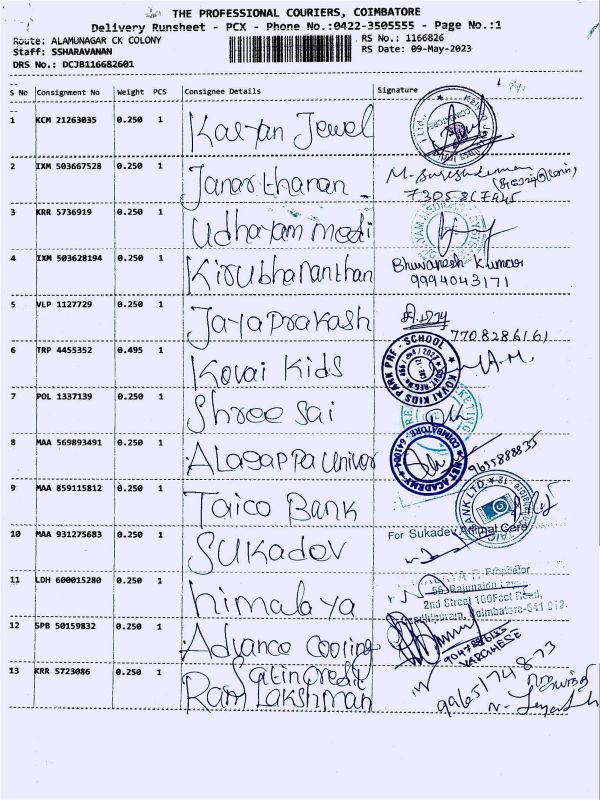 THE PROFESSIONAL COURIERS, COIMBATORE
Delivery Runsheet - PCX - Phone No.:0422-3505555 - Page No.:1
Route: ALAMUNAGAR CK COLONY
Staff: SSHARAVANAN
DRS No.: DCJB116682601
RS No.: 1166826
RS Date: 09-May-2023
S No Consignment No Weight PCS Consignee Details Signature
1 KCM 21263035 0.250 1 Kalyan Jewel
2 IXM 503667528 0.250 1 Janarthanan M. Sureshkumar
7305867445
3 KRR 5736919 0.250 1 Udhayam medi
4 IXM 503628194 0.250 1 Kirubhananthan Bhuvanesh Kumar
9994043171
5 VLP 1127729 0.250 1 Jayaprakash
7708286161
6 TRP 4455352 0.495 1 Kovai Kids KOVAI KIDS PARK PRE - SCHOOL
7 POL 1337139 0.250 1 Shree Sai
8 MAA 569893491 0.250 1 Alagappa Univer NET ACADEMY COIMBATORE- 641004
9 MAA 859115812 0.250 1 Taico Bank BANK LTD.
10 MAA 931275683 0.250 1 Sukadev For Sukadev Animal Care
11 LDH 600015280 0.250 1 himalaya Proprietor
2nd Street 100Feet Road,
Gandhipuram, Coimbatore-641 012.
12 SPB 50159832 0.250 1 Advance Cooling
VARGHESE
13 KRR 5723086 0.250 1 Satincredit
Ram Lakshman 9965174873